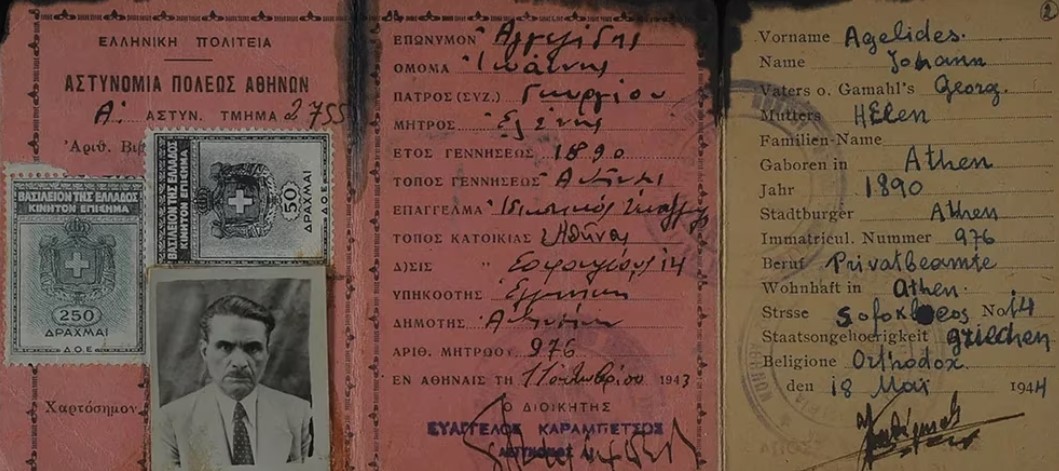 ΕΛΛΗΝΙΚΗ ΠΟΛΙΤΕΙΑ
ΑΣΤΥΝΟΜΙΑ ΠΟΛΕΩΣ ΑΘΗΝΩΝ
Α΄. ΑΣΤΥΝ. ΤΜΗΜΑ 2755
Ἀριθ.
ΒΑΣΙΛΕΙΟΝ ΤΗΣ ΕΛΛΑΔΟΣ
ΚΙΝΗΤΟΝ ΕΠΙΣΗΜΑ
50
ΔΡΑΧΜΑΙ
Δ.Ο.Ε.
ΒΑΣΙΛΕΙΟΝ ΤΗΣ ΕΛΛΑΔΟΣ
ΚΙΝΗΤΟΝ ΕΠΙΣΗΜΑ
250
ΔΡΑΧΜΑΙ
Δ.Ο.Ε.
Χαρτόσημον
ΕΠΩΝΥΜΟΝ Ἀγγελίδης
ΟΜΟΜΑ Ἰωάννης
ΠΑΤΡΟΣ (ΣΥΖ.) Γεωργίου
ΜΗΤΡΟΣ Ἑλένης
ΕΤΟΣ ΓΕΝΝΗΣΕΩΣ 1890
ΤΟΠΟΣ ΓΕΝΝΗΣΕΩΣ Ἀθῆναι
ΕΠΑΓΓΕΛΜΑ Ἰδιωτικός
ΤΟΠΟΣ ΚΑΤΟΙΚΙΑΣ Ἀθῆναι
Δ)ΣΙΣ " 14
ΥΠΗΚΟΟΤΗΣ
ΔΗΜΟΤΗΣ
ΑΡΙΘ. ΜΗΤΡΩΟΥ 976
ΕΝ ΑΘΗΝΑΙΣ ΤΗ 1943
Ο ΔΙΟΙΚΗΤΗΣ
ΕΥΑΓΓΕΛΟΣ ΚΑΡΑΜΠΕΤΣΟΣ
2
Vorname Agelides.
Name Johann
Vaters o. Gamahl's Georg.
Mutters HElen
Familien-Name
Gaboren in Athen
Jahr 1890
Stadtburger Athen
Immatricul. Nummer 976
Beruf Privatbeamte
Wohnhaft in Athen.
Strsse Sofokleos No 14
Staatsongehoerigkeit griechen
Beligione Orthodox.
den 18 Mai 1944